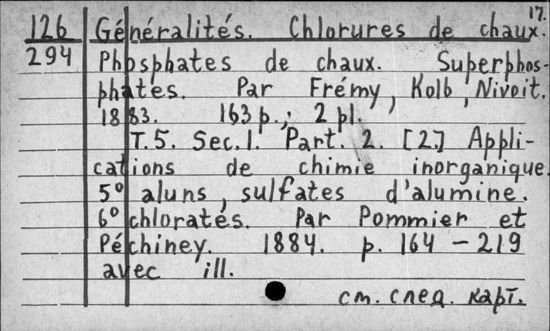 17.
126 Généralités. Chlorures de chaux.
294 Phosphates de chaux. Superphos-
phates. Par Frémy, Kolb, Nivoit.
1883. 163 p.; 2 pl.
T. 5. Sec. 1. Part. 2. [2] Appli-
cations de chimie inorganique.
5° aluns, sulfates d'alumine.
6° chloratés. Par Pommier et
Péchiney. 1884. p. 164 – 219
avec ill.
см. след. карт.